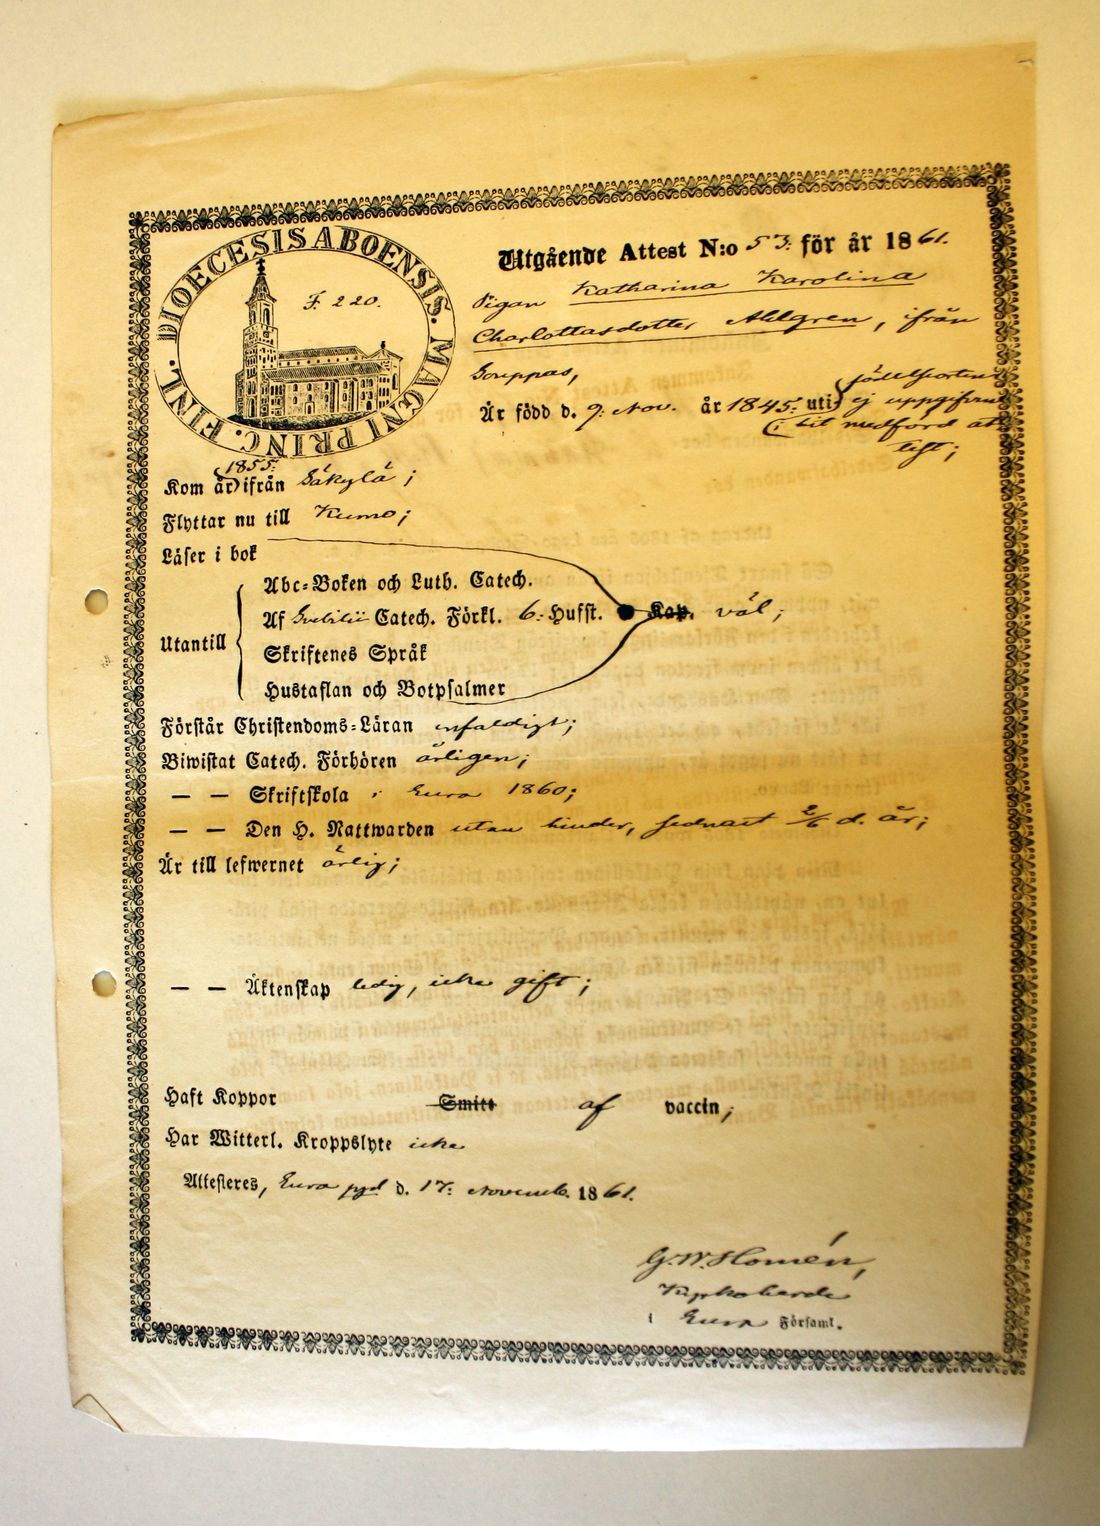 DIOECESIS ABOENSIS. MAGNI PRINC. FINL.
F. 220.
Utgående Attest N:o 53. för år 1861.
Pigan Katharina Karolina
Charlottasdotter Ahlgren, ifrån
Souppas,
Är född d. 9. Nov. år 1845. uti födelseorten
ej uppgifven
i hit medförd at
test;
1855.
Kom år ifrån Säkylä;
Flyttar nu till Kumo;
Läser i bok
Abc-Boken och Luth. Catech.
Utantill
Af Svebilii Catech. Förkl. 6. Husst. Kap. väl;
Skriftenes Språk
Hustaflan och Botpsalmer
Förstår Christendoms-Läran enfaldigt;
Biwistat Catech. Förhören årligen;
— — Skriftskola i Eura 1860;
— — Den H. Nattwarden utan hinder, sednast 2/6 d. år;
Är till lefwernet ärlig;
— — Äktenskap ledig, icke gift;
Haft Koppor Smitt af vaccin;
Har Witterl. Kroppslyte icke
Attesteres, Eura pgd d. 17. Novemb. 1861.
G. W. Homén,
Kyrkoherde
i Eura Församl.